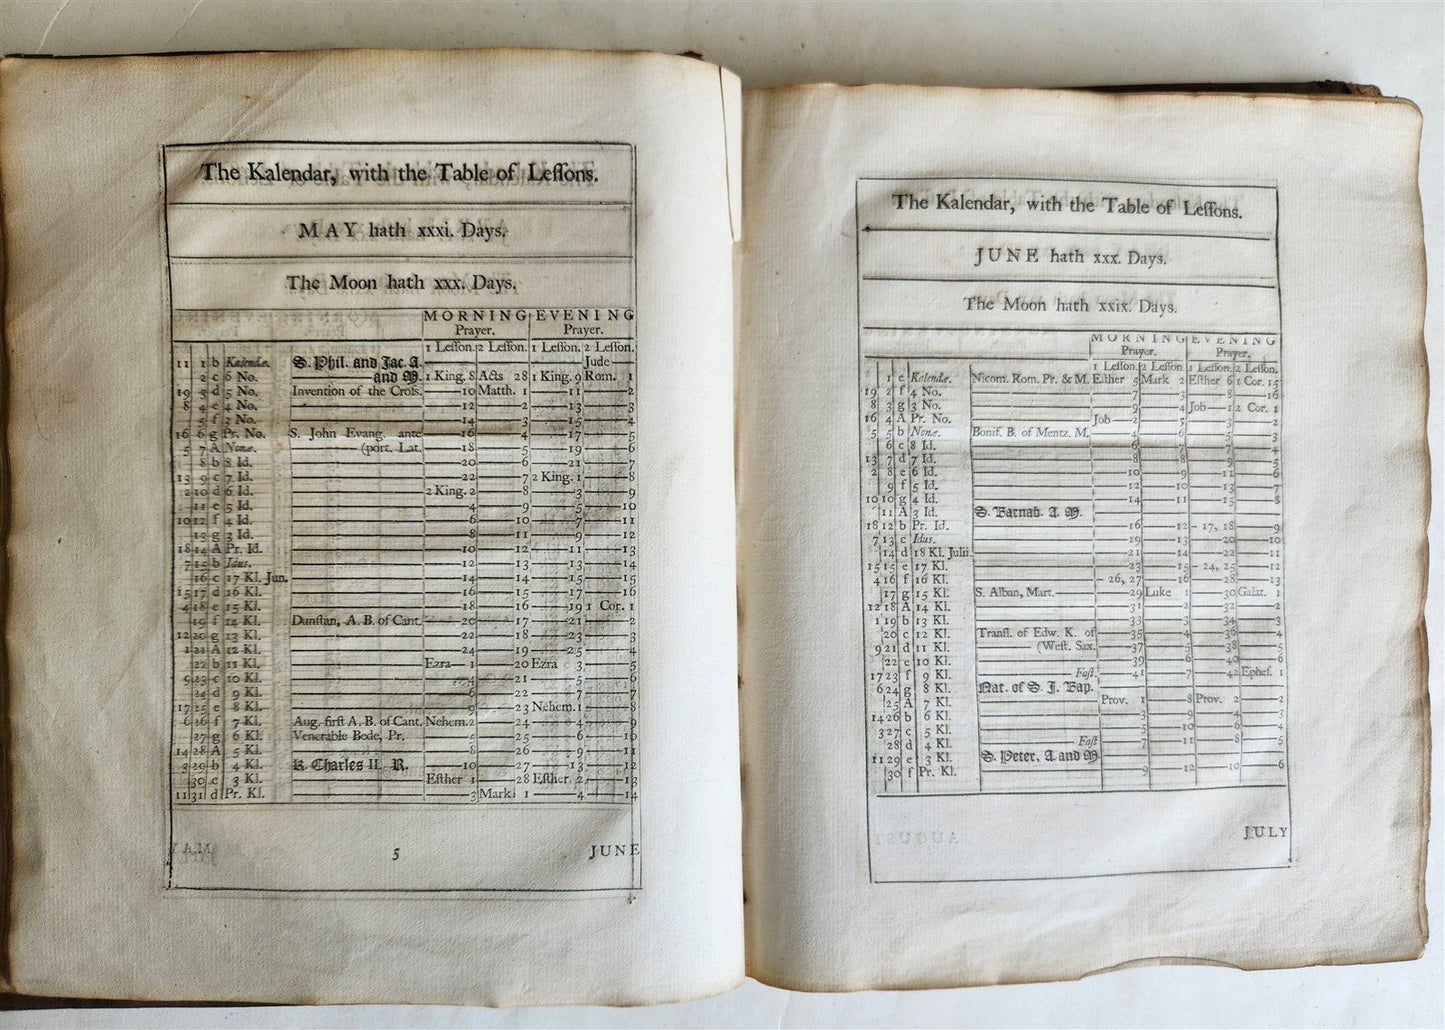 The Kalendar, with the Table of Leſſons.
MAY hath xxxi. Days.
The Moon hath xxx. Days.
MORNING EVENING
Prayer. Prayer.
1 Leſſon. 2 Leſſon. 1 Leſſon. 2 Leſſon.
11 1 b Kalendæ. S. Phil. and Jac. A. Jude
2 c 6 No. and M. 1 King. 8 Acts 28 1 King. 9 Rom. 1
19 3 d 5 No. Invention of the Croſs. 10 Matth. 1 11 2
8 4 e 4 No. 12 2 13 3
5 f 3 No. 14 3 15 4
16 6 g Pr. No. S. John Evang. ante 16 4 17 5
5 7 A Nonæ. (port. Lat. 18 5 19 6
8 b 8 Id. 20 6 21 7
13 9 c 7 Id. 22 7 2 King. 1 8
2 10 d 6 Id. 2 King. 2 8 3 9
11 e 5 Id. 4 9 5 10
10 12 f 4 Id. 6 10 7 11
13 g 3 Id. 8 11 9 12
18 14 A Pr. Id. 10 12 11 13
7 15 b Idus. 12 13 13 14
16 c 17 Kl. Jun. 14 14 15 15
15 17 d 16 Kl. 16 15 17 16
4 18 e 15 Kl. 18 16 19 1 Cor. 1
19 f 12 Kl. Dunſtan, A. B. of Cant. 20 17 21 2
12 20 g 13 Kl. 22 18 23 3
1 21 A 12 Kl. 24 19 25 4
22 b 11 Kl. Ezra 1 20 Ezra 3 5
9 23 c 10 Kl. 4 21 5 6
24 d 9 Kl. 6 22 7 7
17 25 e 8 Kl. 9 23 Nehem. 1 8
6 26 f 7 Kl. Aug. firſt A. B. of Cant. Nehem. 2 24 4 9
27 g 6 Kl. Venerable Bede, Pr. 5 25 6 10
14 28 A 5 Kl. 8 26 9 11
3 29 b 4 Kl. K. Charles II. R. 10 27 13 12
30 c 3 Kl. Eſther 1 28 Eſther 2 13
11 31 d Pr. Kl. 3 Mark 1 4 14
5 JUNE
The Kalendar, with the Table of Leſſons.
JUNE hath xxx. Days.
The Moon hath xxix. Days.
MORNING EVENING
Prayer. Prayer.
1 Leſſon. 2 Leſſon. 1 Leſſon. 2 Leſſon.
1 e Kalendæ. Nicom. Rom. Pr. & M. Eſther 5 Mark 2 Eſther 6 1 Cor. 15
19 2 f 4 No. 7 3 8 16
8 3 g 3 No. 9 4 Job 1 2 Cor. 1
16 4 A Pr. No. Job 2 5 3 2
5 5 b Nonæ. Bonif. B. of Mentz. M. 4 6 5 3
6 c 8 Id. 6 7 7 4
13 7 d 7 Id. 8 8 9 5
2 8 e 6 Id. 10 9 11 6
9 f 5 Id. 12 10 13 7
10 10 g 4 Id. 14 11 15 8
11 A 3 Id. S. Barnab. A. M.
18 12 b Pr. Id. 16 12 17, 18 9
7 13 c Idus. 19 13 20 10
14 d 18 Kl. Julii. 21 14 22 11
15 15 e 17 Kl. 23 15 24, 25 12
4 16 f 16 Kl. 26, 27 16 28 13
17 g 15 Kl. S. Alban, Mart. 29 Luke 1 30 Galat. 1
12 18 A 14 Kl. 31 2 32 2
1 19 b 13 Kl. 33 3 34 3
20 c 12 Kl. Tranſl. of Edw. K. of 35 4 36 4
9 21 d 11 Kl. (Weſt. Sax. 37 5 38 5
22 e 10 Kl. 39 6 40 6
17 23 f 9 Kl. Faſt. 41 7 42 Epheſ. 1
6 24 g 8 Kl. Nat. of S. J. Bap.
25 A 7 Kl. Prov. 1 8 Prov. 2 2
14 26 b 6 Kl. 3 9 4 3
3 27 c 5 Kl. 5 10 6 4
28 d 4 Kl. Faſt 7 11 8 5
11 29 e 3 Kl. S. Peter, A. and M.
30 f Pr. Kl. 9 12 10 6
JULY